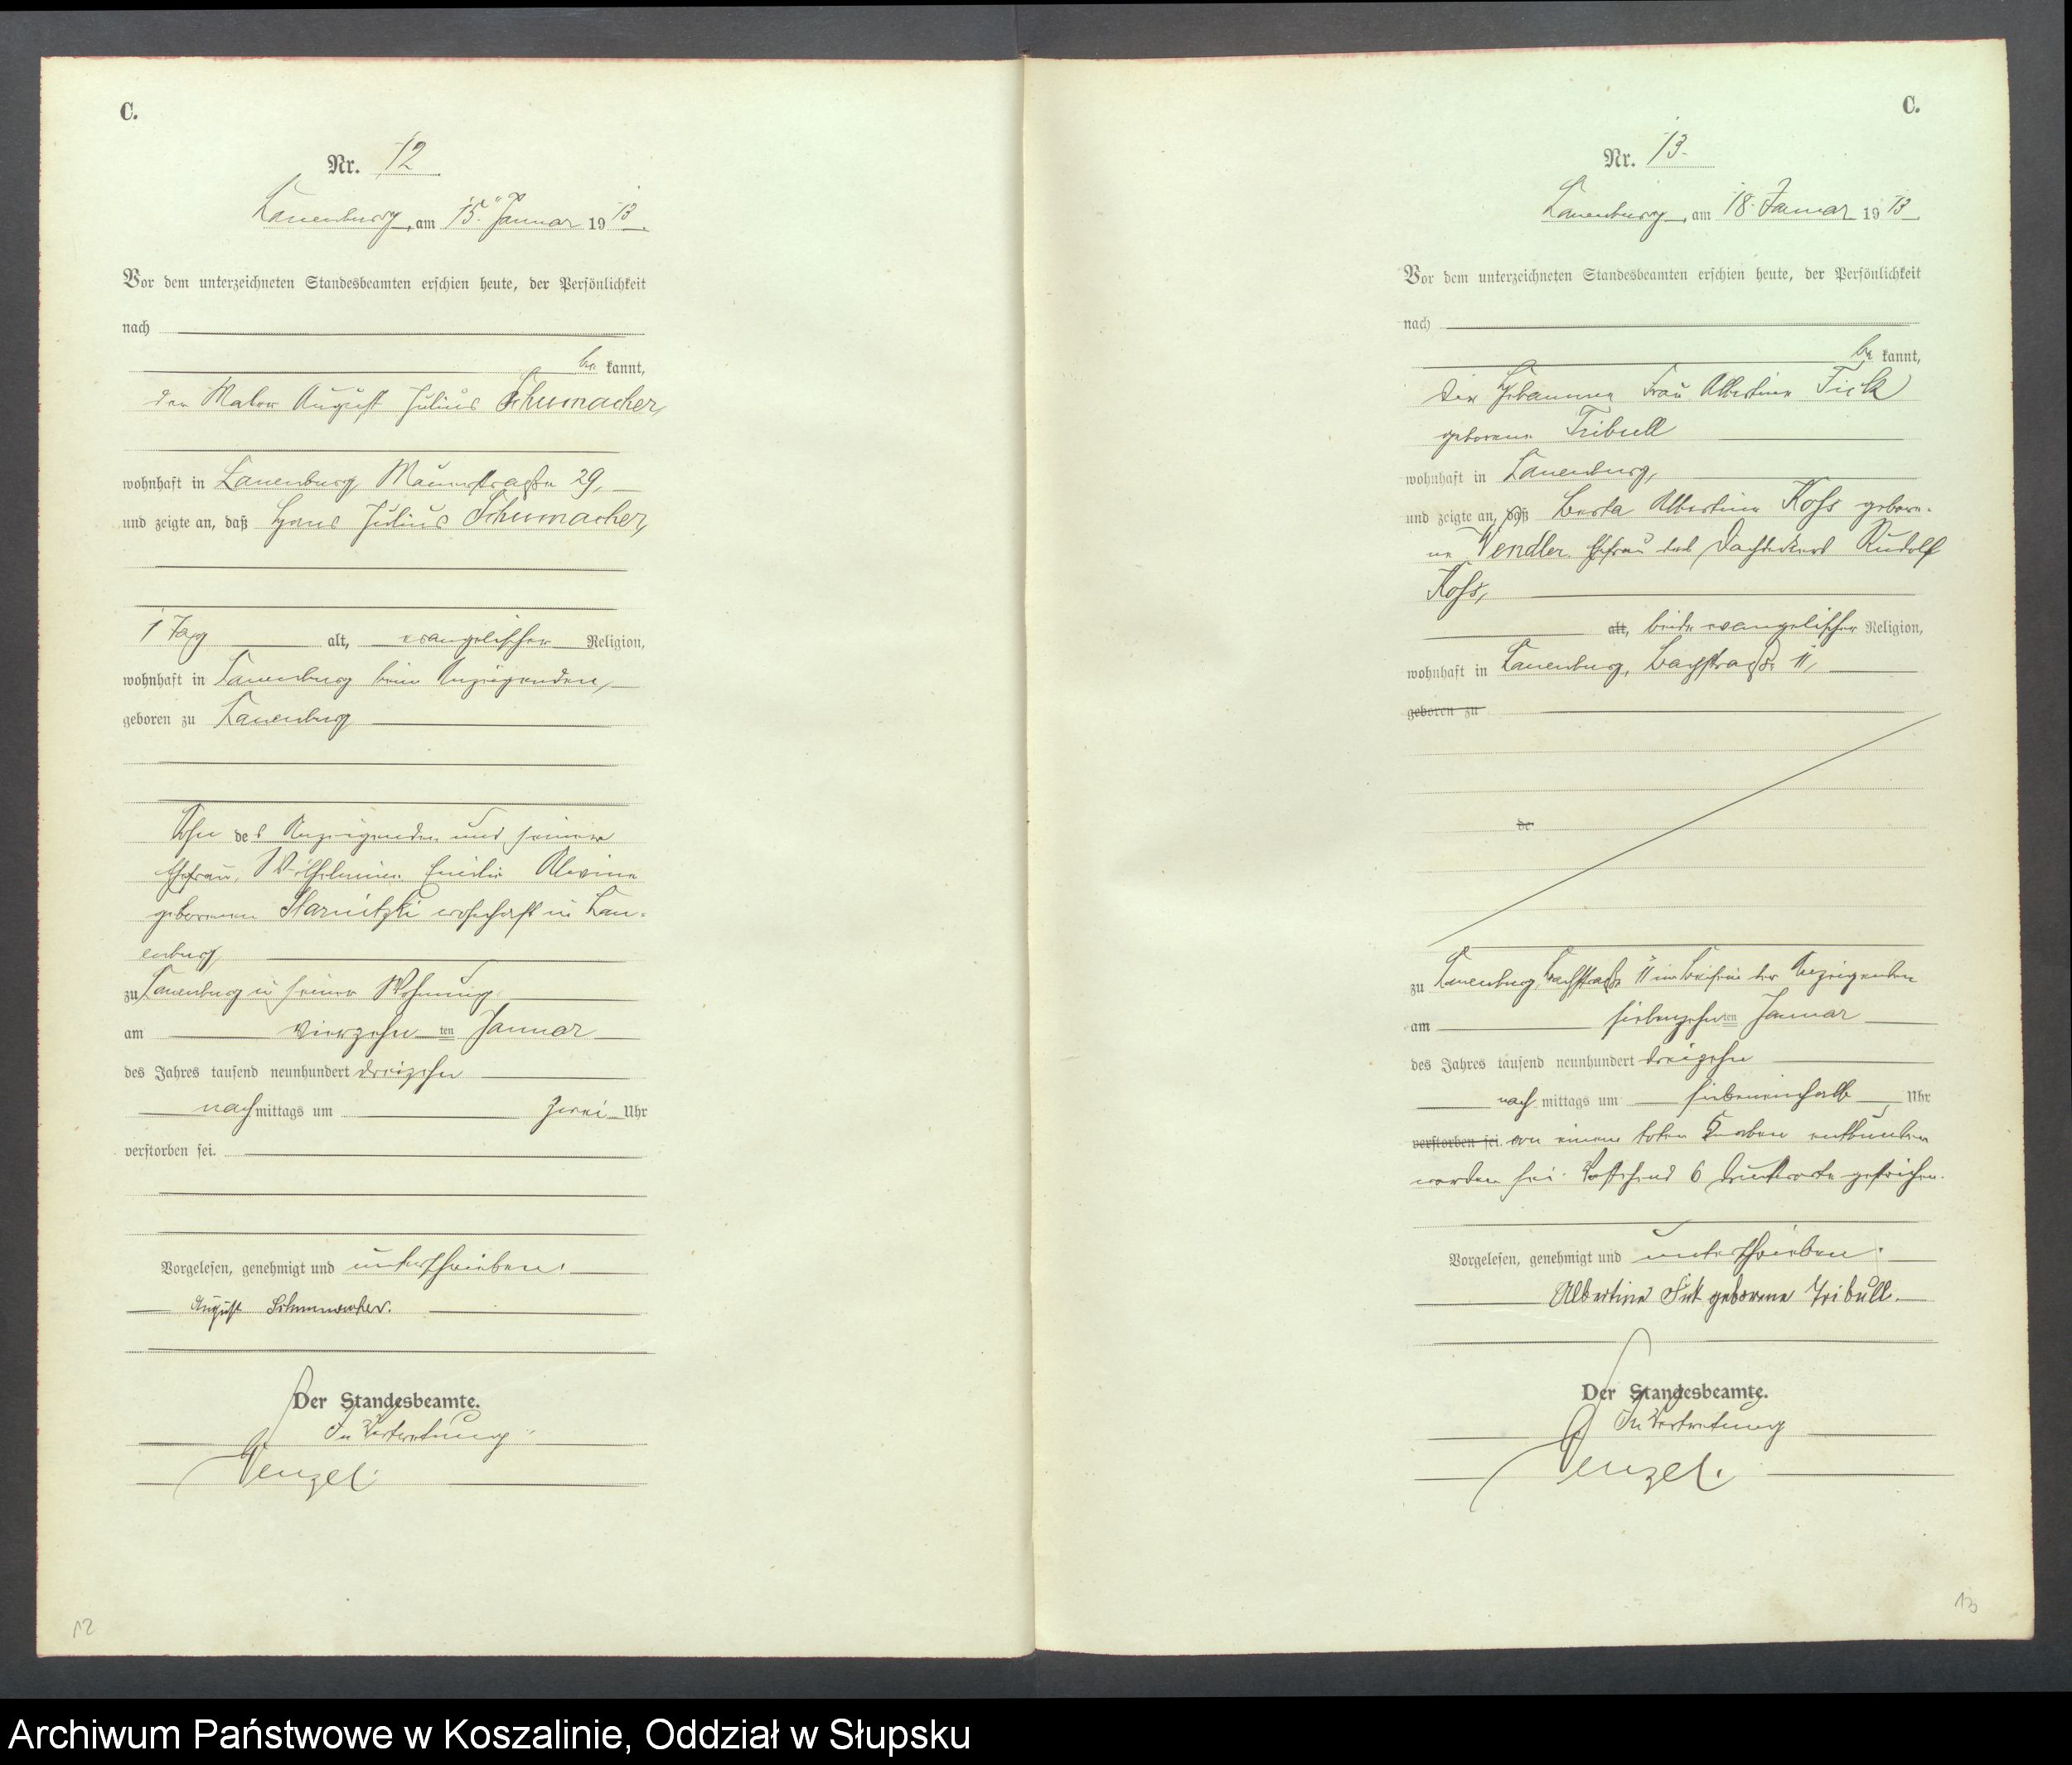 C.
Nr. 12
Lauenburg, am 15. Januar 1913.
Vor dem unterzeichneten Standesbeamten erschien heute, der Persönlichkeit
nach
be kannt,
der Maler August Julius Schumacher,
wohnhaft in Lauenburg Mauerstraße 29,
und zeigte an, daß Hans Julius Schumacher,
1 Tag alt, evangelischer Religion,
wohnhaft in Lauenburg beim Anzeigenden,
geboren zu Lauenburg
Sohn des Anzeigenden und seiner
Ehefrau, Wilhelmine Emilie Alwine
geborenen Starnitzki wohnhaft in Lau-
enburg
zu Lauenburg in seiner Wohnung
am vierzehnten Januar
des Jahres tausend neunhundert dreizehn
nachmittags um zwei Uhr
verstorben sei.
Vorgelesen, genehmigt und unterschrieben.
August Schumacher.
Der Standesbeamte.
In Vertretung
Wenzel.
12
C.
Nr. 13.
Lauenburg, am 18. Januar 1913
Vor dem unterzeichneten Standesbeamten erschien heute, der Persönlichkeit
nach
be kannt,
die Hebamme Frau Albertine Fick
geborene Tribull
wohnhaft in Lauenburg,
und zeigte an, daß Berta Albertine Koss gebore-
ne Wendler Ehefrau des Dachdeckers Rudolf
Koss,
alt, beide evangelischer Religion,
wohnhaft in Lauenburg, Bachstraße 11,
geboren zu
de
zu Lauenburg, Bachstraße 11 im Beisein der Anzeigenden
am siebenzehnten Januar
des Jahres tausend neunhundert dreizehn
nach mittags um siebeneinhalb Uhr
verstorben sei von einem toten Knaben entbunden
worden sei. Vorstehend 6 Druckworte gestrichen.
Vorgelesen, genehmigt und unterschrieben.
Albertine Fick geborene Tribull.
Der Standesbeamte.
In Vertretung
Wenzel.
13
Archiwum Państwowe w Koszalinie, Oddział w Słupsku